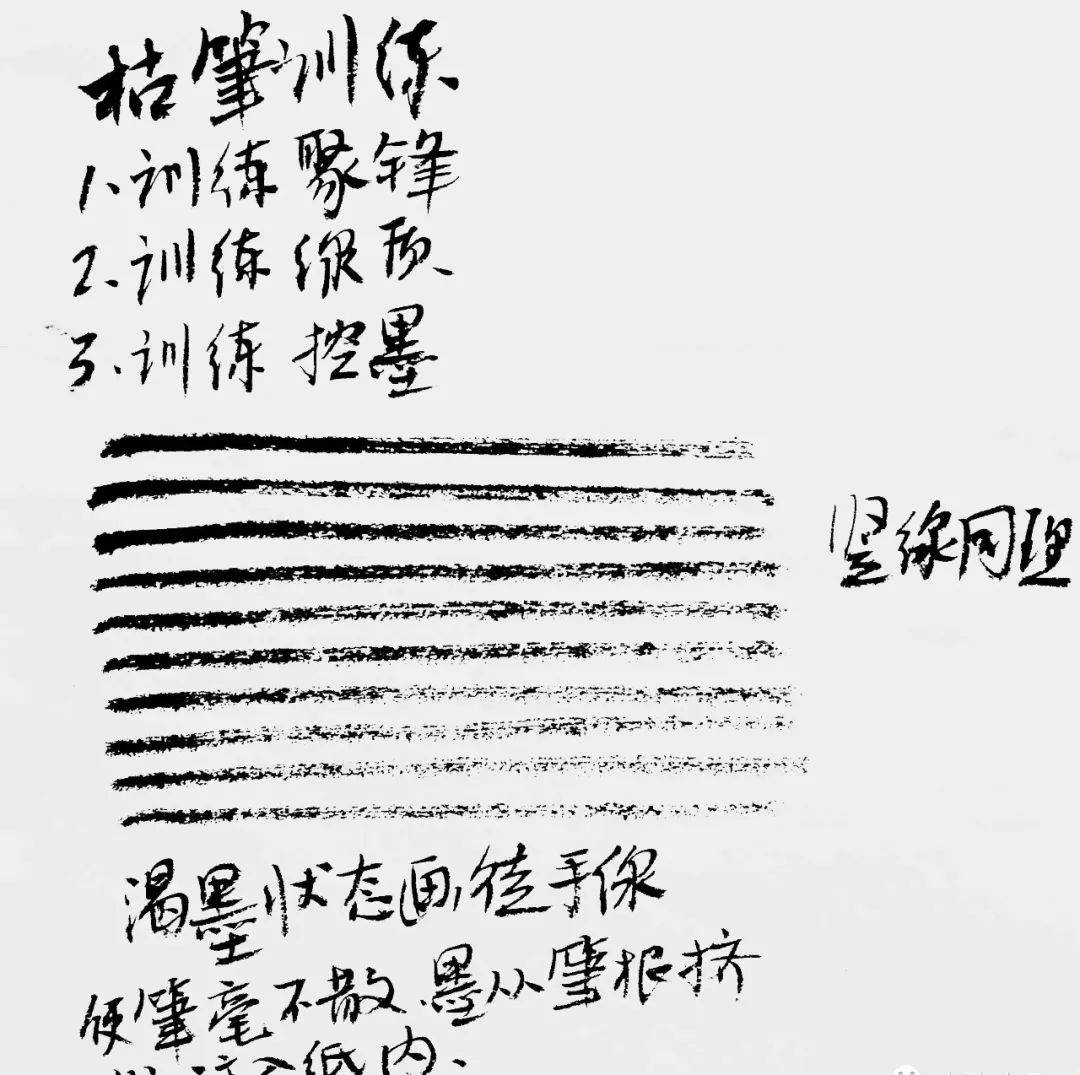 枯筆训练
1、训练聚锋
2、训练线质
3、训练控墨
竖线同理
渴墨状态画徒手线
使筆毫不散、墨从筆根挤
入纸内、